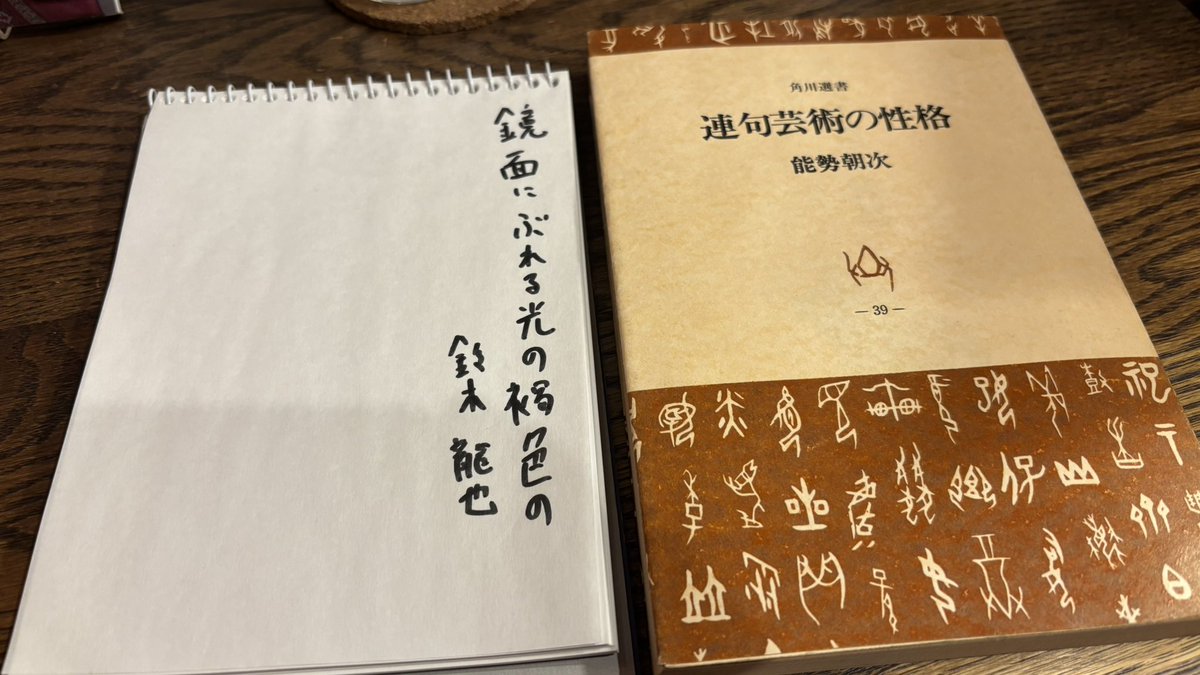 鏡面にぶれる光の褐色の
鈴木 龍也
角川選書
連句芸術の性格
能勢朝次
— 39 —